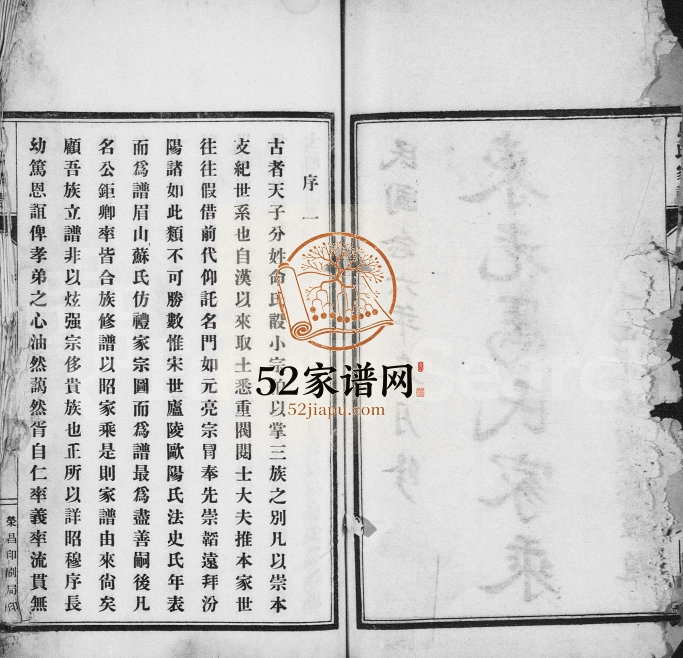 東光馬氏家乘
序一
古者天子分姓命氏設小宗以掌三族之別凡以崇本
支紀世系也自漢以來取士悉重閥閱士大夫推本家世
往往假借前代仰託名門如元亮宗冒奉先崇韜遠拜汾
陽諸如此類不可勝數惟宋世廬陵歐陽氏法史氏年表
而爲譜眉山蘇氏仿禮家宗圖而爲譜最爲盡善嗣後凡
名公鉅卿率皆合族修譜以昭家乘是則家譜由來尙矣
顧吾族立譜非以炫强宗侈貴族也正所以詳昭穆序長
幼篤恩誼俾孝弟之心油然藹然胥自仁率義率流貫無
榮昌印刷局印
52家谱网
52jiapu.com